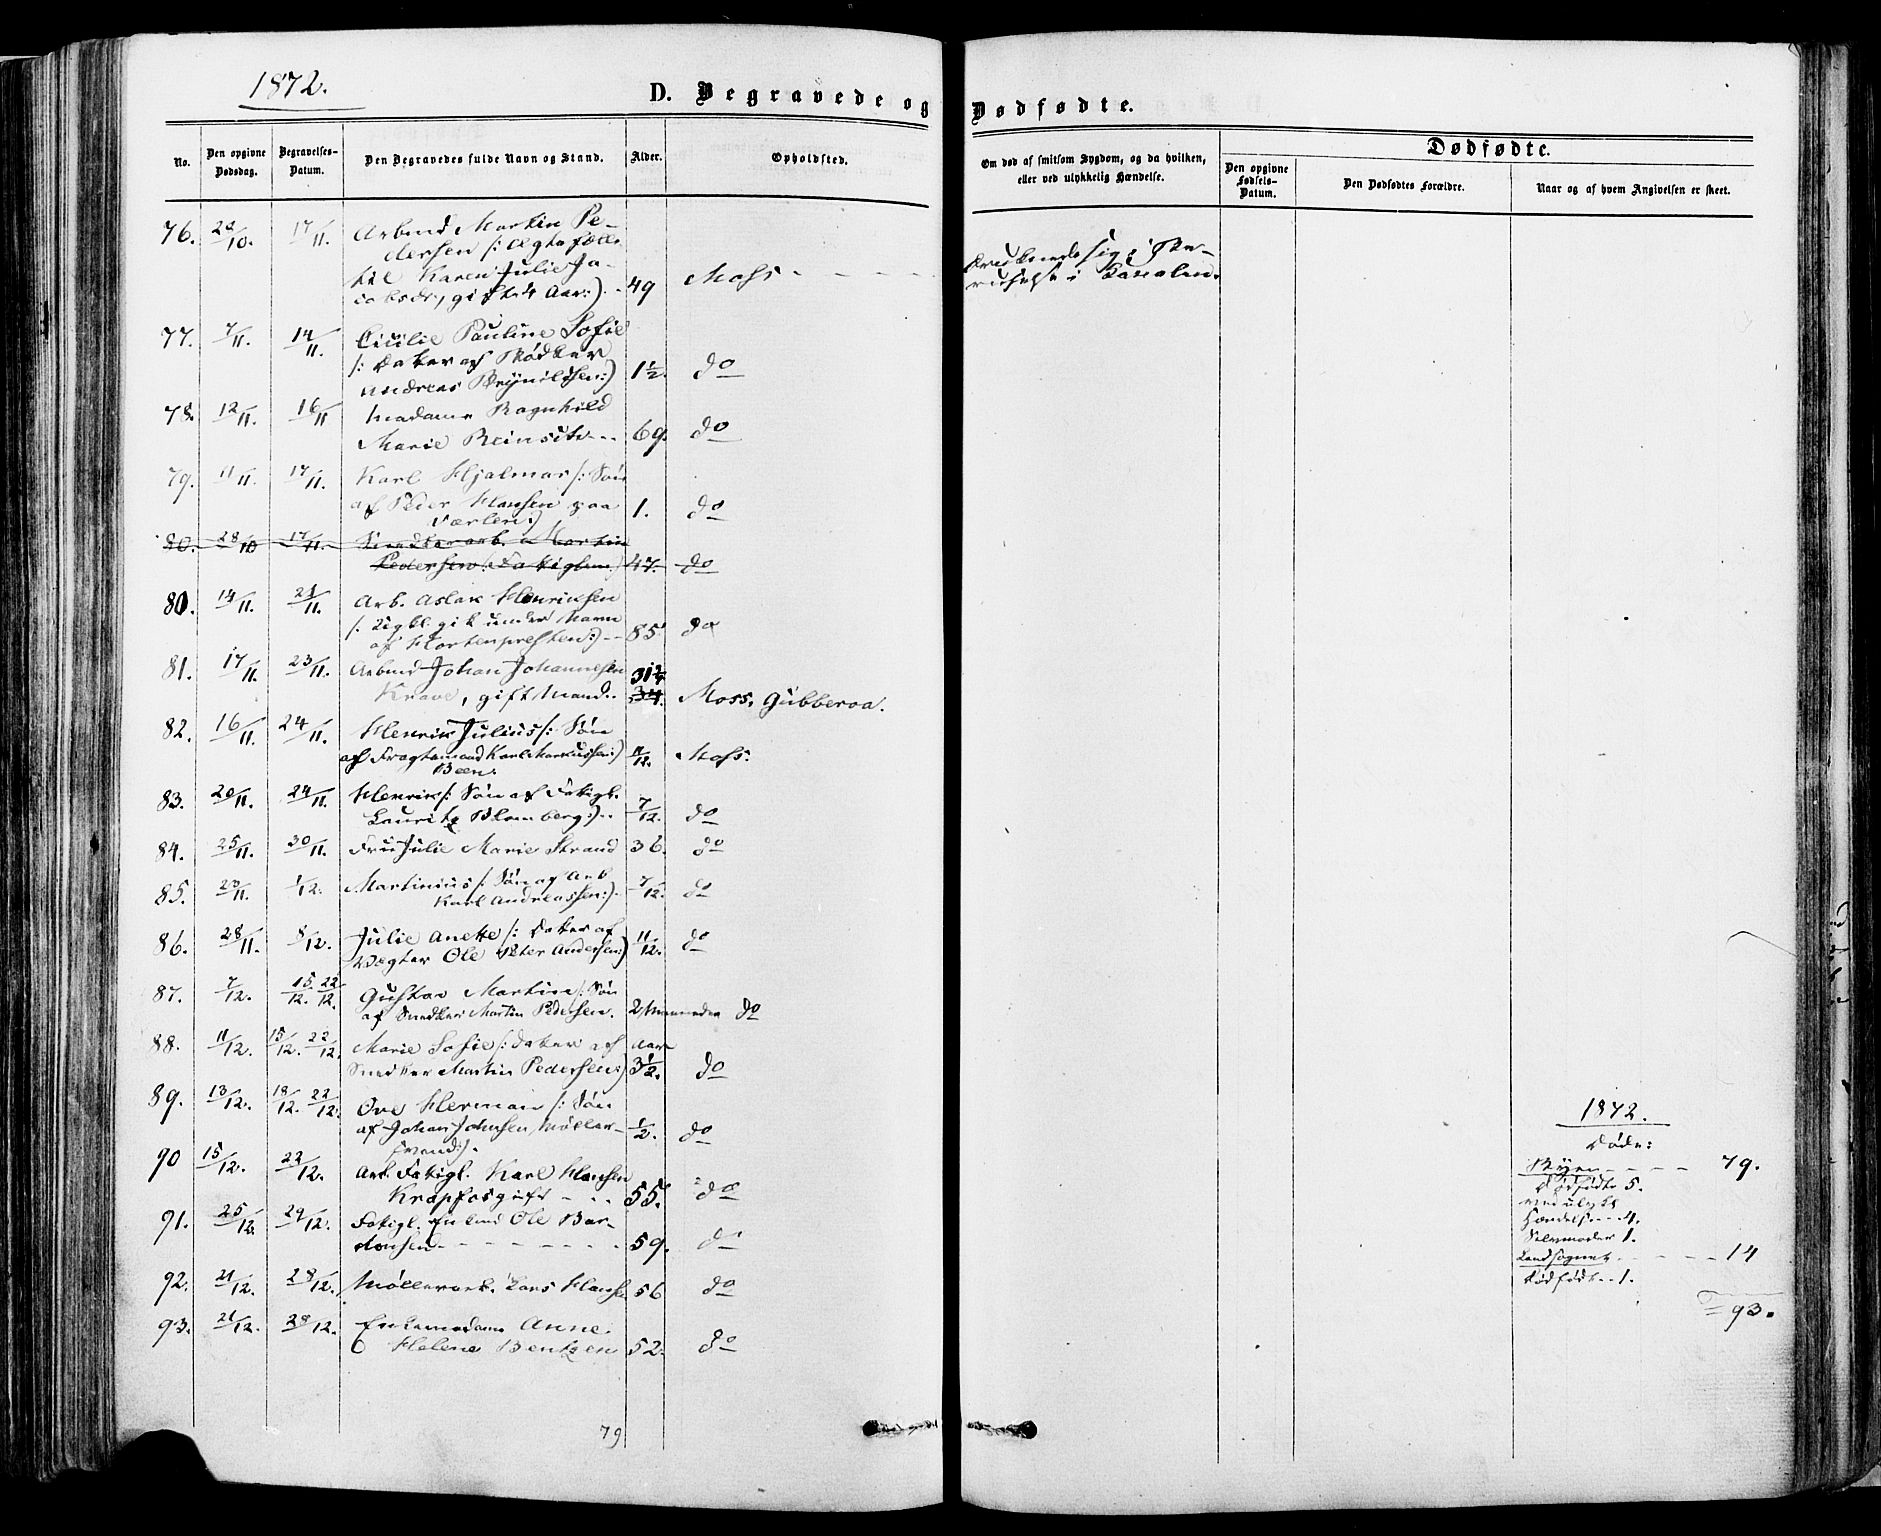 1872.
D. Begravede og Dødfødte.
No.
Den opgivne Dødsdag.
Begravelses-Datum.
Den Begravedes fulde Navn og Stand.
Alder.
Opholdsted.
Om død af smitsom Sygdom, og da hvilken, eller ved ulykkelig Hændelse.
Dødfødte.
Den opgivne Fødsels-Datum.
Den Dødfødtes Forældre.
Naar og af hvem Angivelsen er skeet.
76. 17/11. Arbmd Martin Pe-
dersen /: Ægtefælle
til Karen Julie Ja-
gift Aar:) 49 Moss
i Kanalen.
77. 7/11. 14/11. Cicilie Pauline Sofie
/: Datter af Bødker
Andreas Brynildsen:) 1½. do
78. 12/11. 16/11 Madame Ragnhild
Marie Reinsch 69. do
79. 11/11. 17/11. Karl Hjalmar /: Søn
af Peder Hansen paa
Værlen:) 1. do
80. 28/10 17/11. Snedkerarb. Martin
Pedersen 47. do
80. 14/11. 21/11. Arb. Aslak Henriksen
/: gik under Navn
af Mortenpresten:) 85 do
81. 17/11. 23/11. Arbmd Johan Johannesen
Krave, gift Mand. 34. Moss. Gubberoa.
82. 16/11. 24/11. Henrik Julius /: Søn
af Fragtemand Karl Markussen:) 11/12. Moss.
Been.
83. 20/11. 24/11. Henrik /: Søn af Fatigl.
Lauritz Blomberg:) 7/12. do
84. 25/11. 30/11. Fru Julie Marie Strand 36. do
85. 23/11. 1/12. Martinius /: Søn af Arb
Karl Andreassen:) 7/12. do
86. 28/11. 8/12. Julie Anette /: Datter af
Vægter Ole Peter Andersen:) 11/12. do
87. 7/12. 15/12. 22/12. Gustav Martin /: Søn
af Snedker Martin Pedersen. 2 Maaneder do
88. 11/12. 15/12. 22/12. Marie Sofie /: Datter af Aar
Snedker Martin Pedersen:) 3½. do
89. 13/12. 18/12. 22/12. Ove Herman /: Søn
af Johan Johnsen, Møller-
svend:). ½. do
90 15/12. 22/12. Arb. Fatigl. Karl Hansen
Krapfos gift 55. do
91. 25/12. 29/12. Fatigl. Ole Bar-
59. do
92. 21/12. 28/12. Møllerarb. Lars Hansen 56 do
93. 21/12. 28/12. Enkemadame Anne
Helene Bentzen 52. do
79
1872.
Døde:
Byen 79.
Dødfødte 5.
ved ulykk
Hændelse 4.
Selvmorder 1.
Landsognet 14
Dødfødt 1.
93.